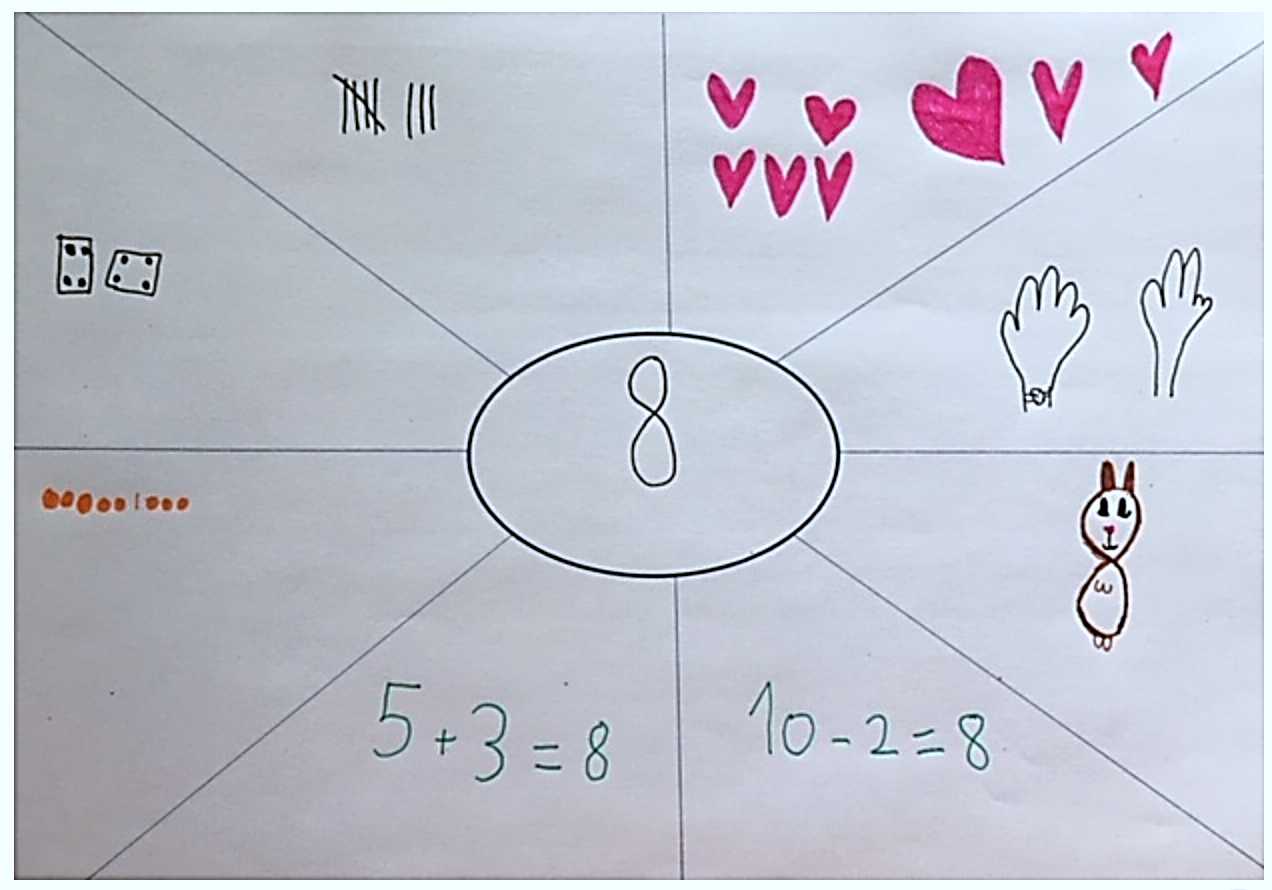 8
5+3=8
10-2=8